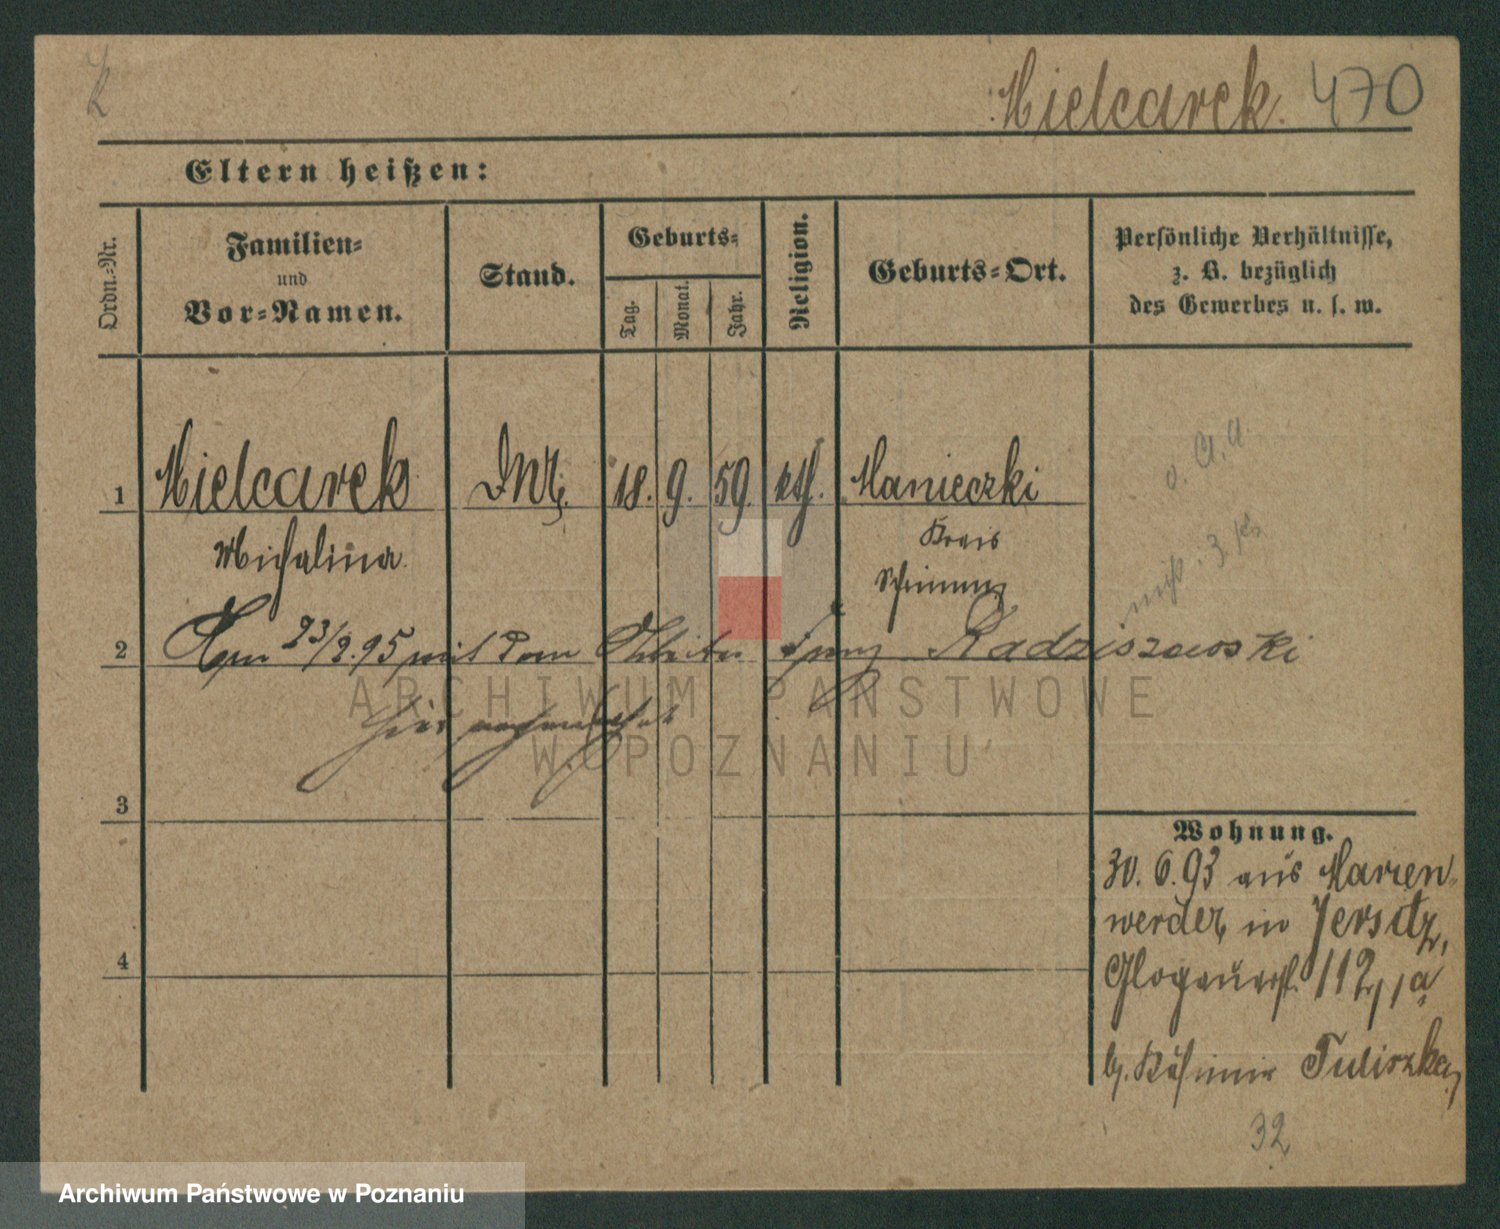 Mielcarek. 470
Eltern heißen:
Ordn.-Nr.
Familien-
und
Vor-Namen.
Stand.
Geburts-
Tag.
Monat.
Jahr.
Religion.
Geburts-Ort.
Persönliche Verhältnisse,
z. B. bezüglich
des Gewerbes u. s. w.
1 Mielcarek 18. 9. 59. kth. Manieczki
Michalina Kreis
Schrimm
2 Am 23/2.95 mit dem Arbeiter Ignaz Radziszewski
hier
3
4
Wohnung.
30. 6. 93 aus Marien-
werder, in Jersitz,
Glogauerst. 112, 1a
b. Kasimir Tuliszka,
32
ARCHIWUM PAŃSTWOWE
W POZNANIU
Archiwum Państwowe w Poznaniu